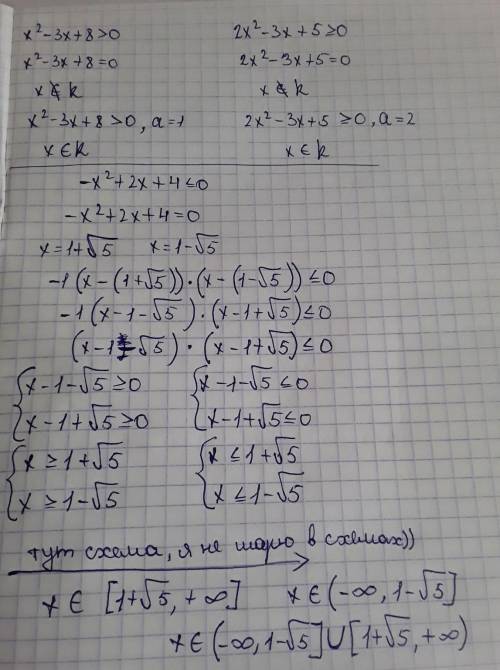 x²-3x+8>0
x²-3x+8=0
x∉k
x²-3x+8>0, a=1
x∈k
2x²-3x+5≥0
2x²-3x+5=0
x∉k
2x²-3x+5≥0, a=2
x∈k
-x²+2x+4≤0
-x²+2x+4=0
x=1+√5 x=1-√5
-1(x-(1+√5))·(x-(1-√5))≤0
-1(x-1-√5)·(x-1+√5)≤0
(x-1-√5)·(x-1+√5)≤0
{x-1-√5≥0 {x-1-√5≤0
x-1+√5≥0 x-1+√5≤0
{x≥1+√5 {x≤1+√5
x≥1-√5 x≤1-√5
тут схема, я не шарю в схемах))
x∈[1+√5,+∞] x∈(-∞,1-√5]
x∈(-∞,1-√5]∪[1+√5,+∞)